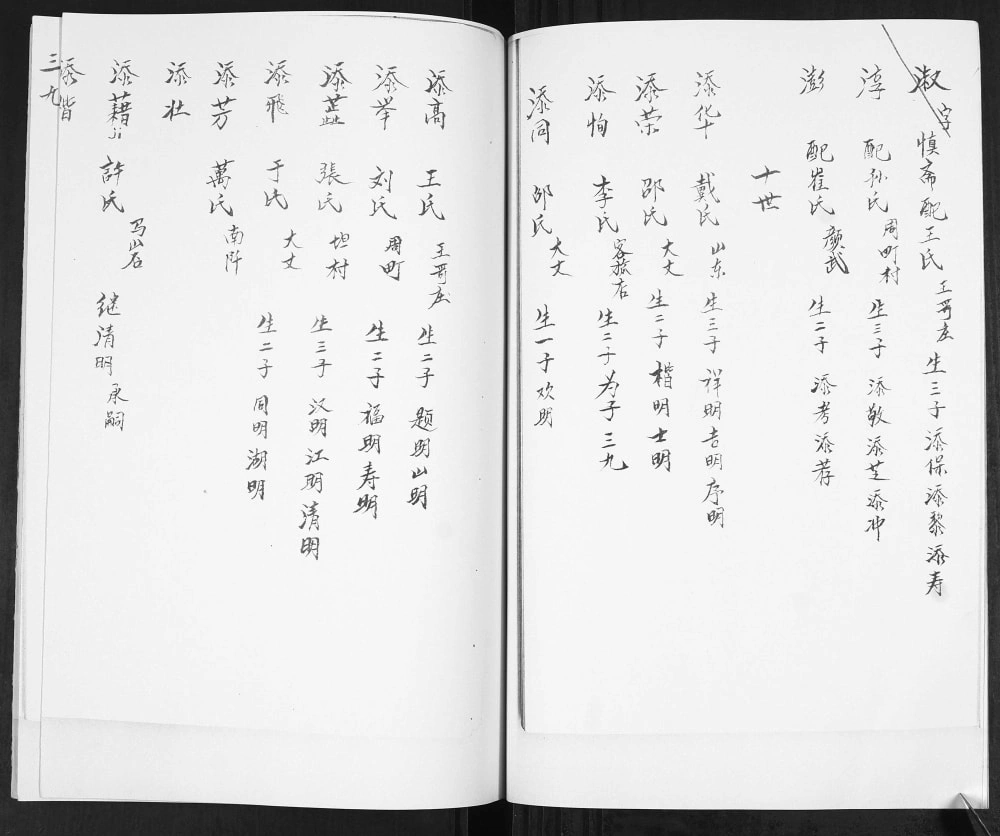 淑 字慎斋 配王氏 王哥庄 生三子 添保 添黎 添寿
淳 配孙氏 周町村 生三子 添敬 添芝 添冲
澎 配崔氏 颜武 生二子 添考 添荐
十世
添华 戴氏 山东 生三子 祥明 吉明 序明
添荣 邵氏 大丈 生二子 楷明 士明
添恂 李氏 客旅店 生二子 为子 三九
添同 邵氏 大丈 生一子 欢明
添高 王氏 王哥庄 生二子 题明 山明
添举 刘氏 周町 生二子 福明 寿明
添 張氏 坦村 生三子 汉明 江明 清明
添飛 于氏 大丈 生二子 同明 湖明
添芳 萬氏 南阡
添壮
添藉ji 許氏 马山石 继清明承嗣
添谐
三九